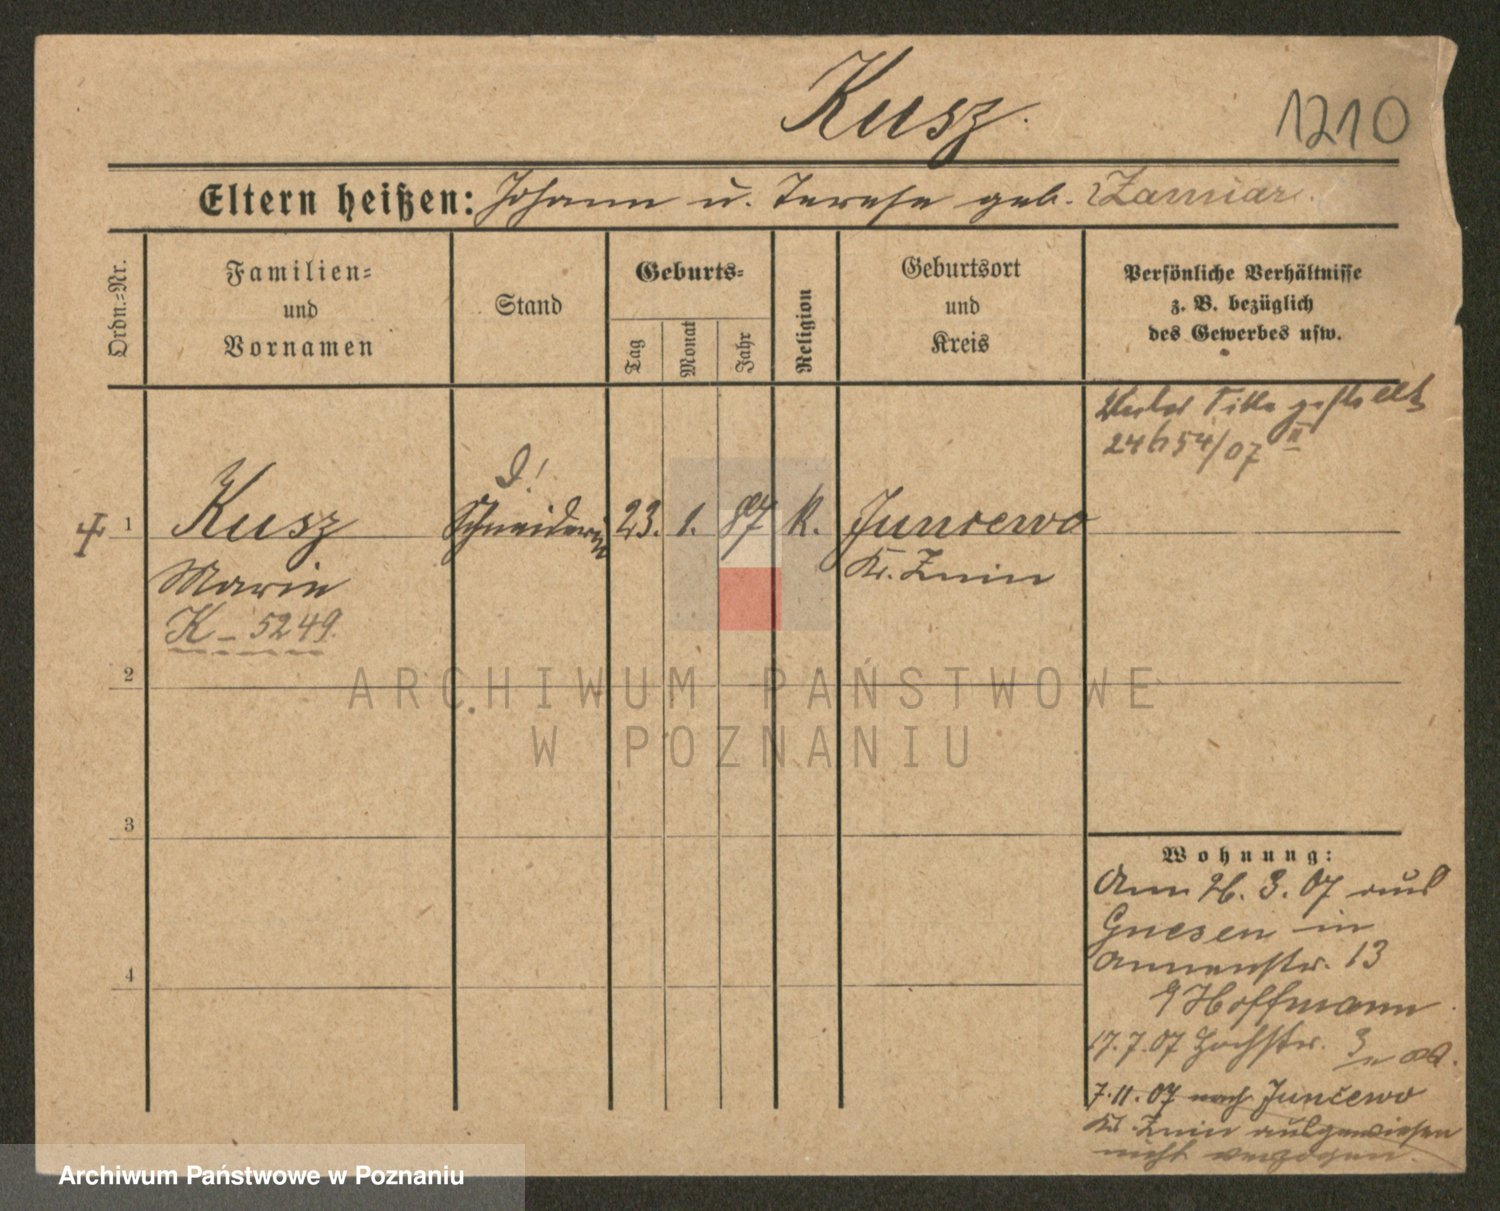 Kusz.
1210
Eltern heißen: Johann u. Terese geb.
Ordn.=Nr.
Familien=
und
Vornamen
Stand
Geburts=
Tag
Monat
Jahr
Religion
Geburtsort
und
Kreis
Persönliche Verhältnisse
z. B. bezüglich
des Gewerbes usw.
Unter Sitte gestellt
/07 II
1
Kusz
Schneiderin
23. 1. 87
K.
Juncewo
Marie
Kr. Znin
K – 5249.
2
3
4
Wohnung:
Am 26. 3. 07 aus
Gnesen in
Annenstr. 13
Hoffmann
17.7.07 Hochstr. 3
7.11.07 nach Juncewo
Kr. Znin ausgewiesen
nicht verzogen.
ARCHIWUM PAŃSTWOWE
W POZNANIU
Archiwum Państwowe w Poznaniu